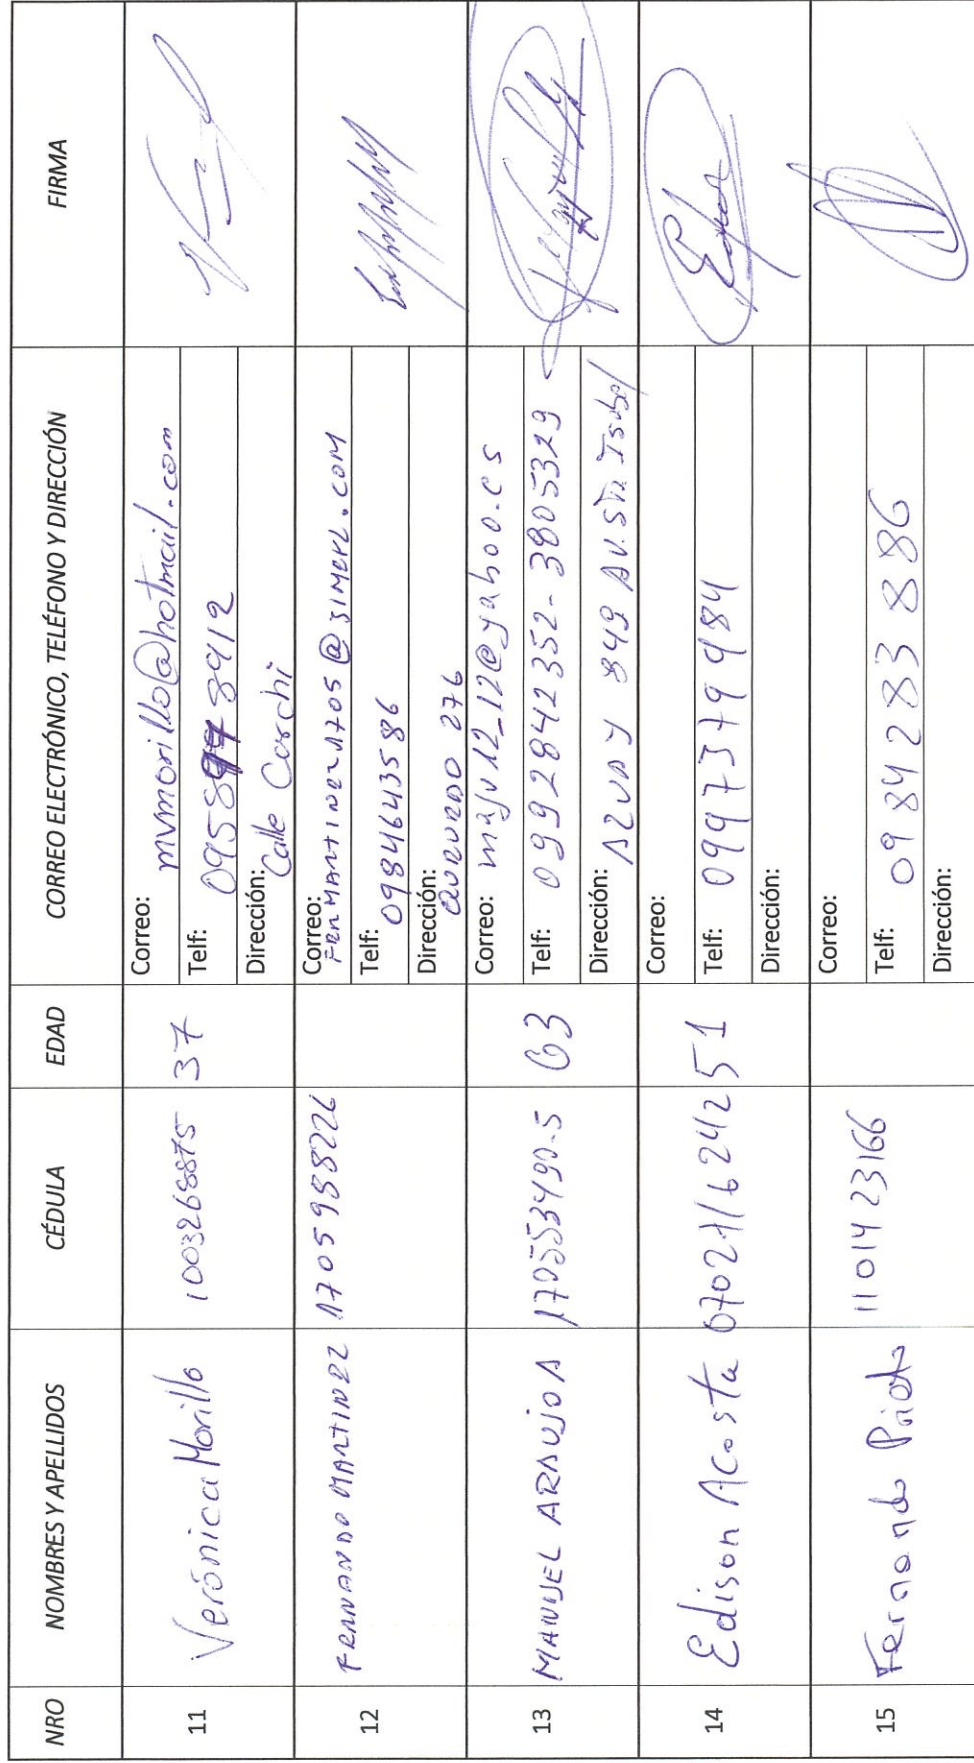 NRO NOMBRES Y APELLIDOS CÉDULA EDAD CORREO ELECTRÓNICO, TELÉFONO Y DIRECCIÓN FIRMA
11 Verónica Morillo 1003268875 37
Correo: mvmorillo@hotmail.com
Telf:
Dirección: Calle Carchi
12 FERNANDO MARTINEZ 1705988226
Correo:
Telf: 0984643586
Dirección: 276
13 MANUEL ARAUJO A 170553490-5 63
Correo: maju12_12@yahoo.es
Telf: 0992842352-3805329
Dirección: AZUAY 849 AV. Sta Isabel
14 Edison Acosta 51
Correo:
Telf: 0997379984
Dirección:
15 Fernando Prieto 1101423166
Correo:
Telf: 0984283886
Dirección: